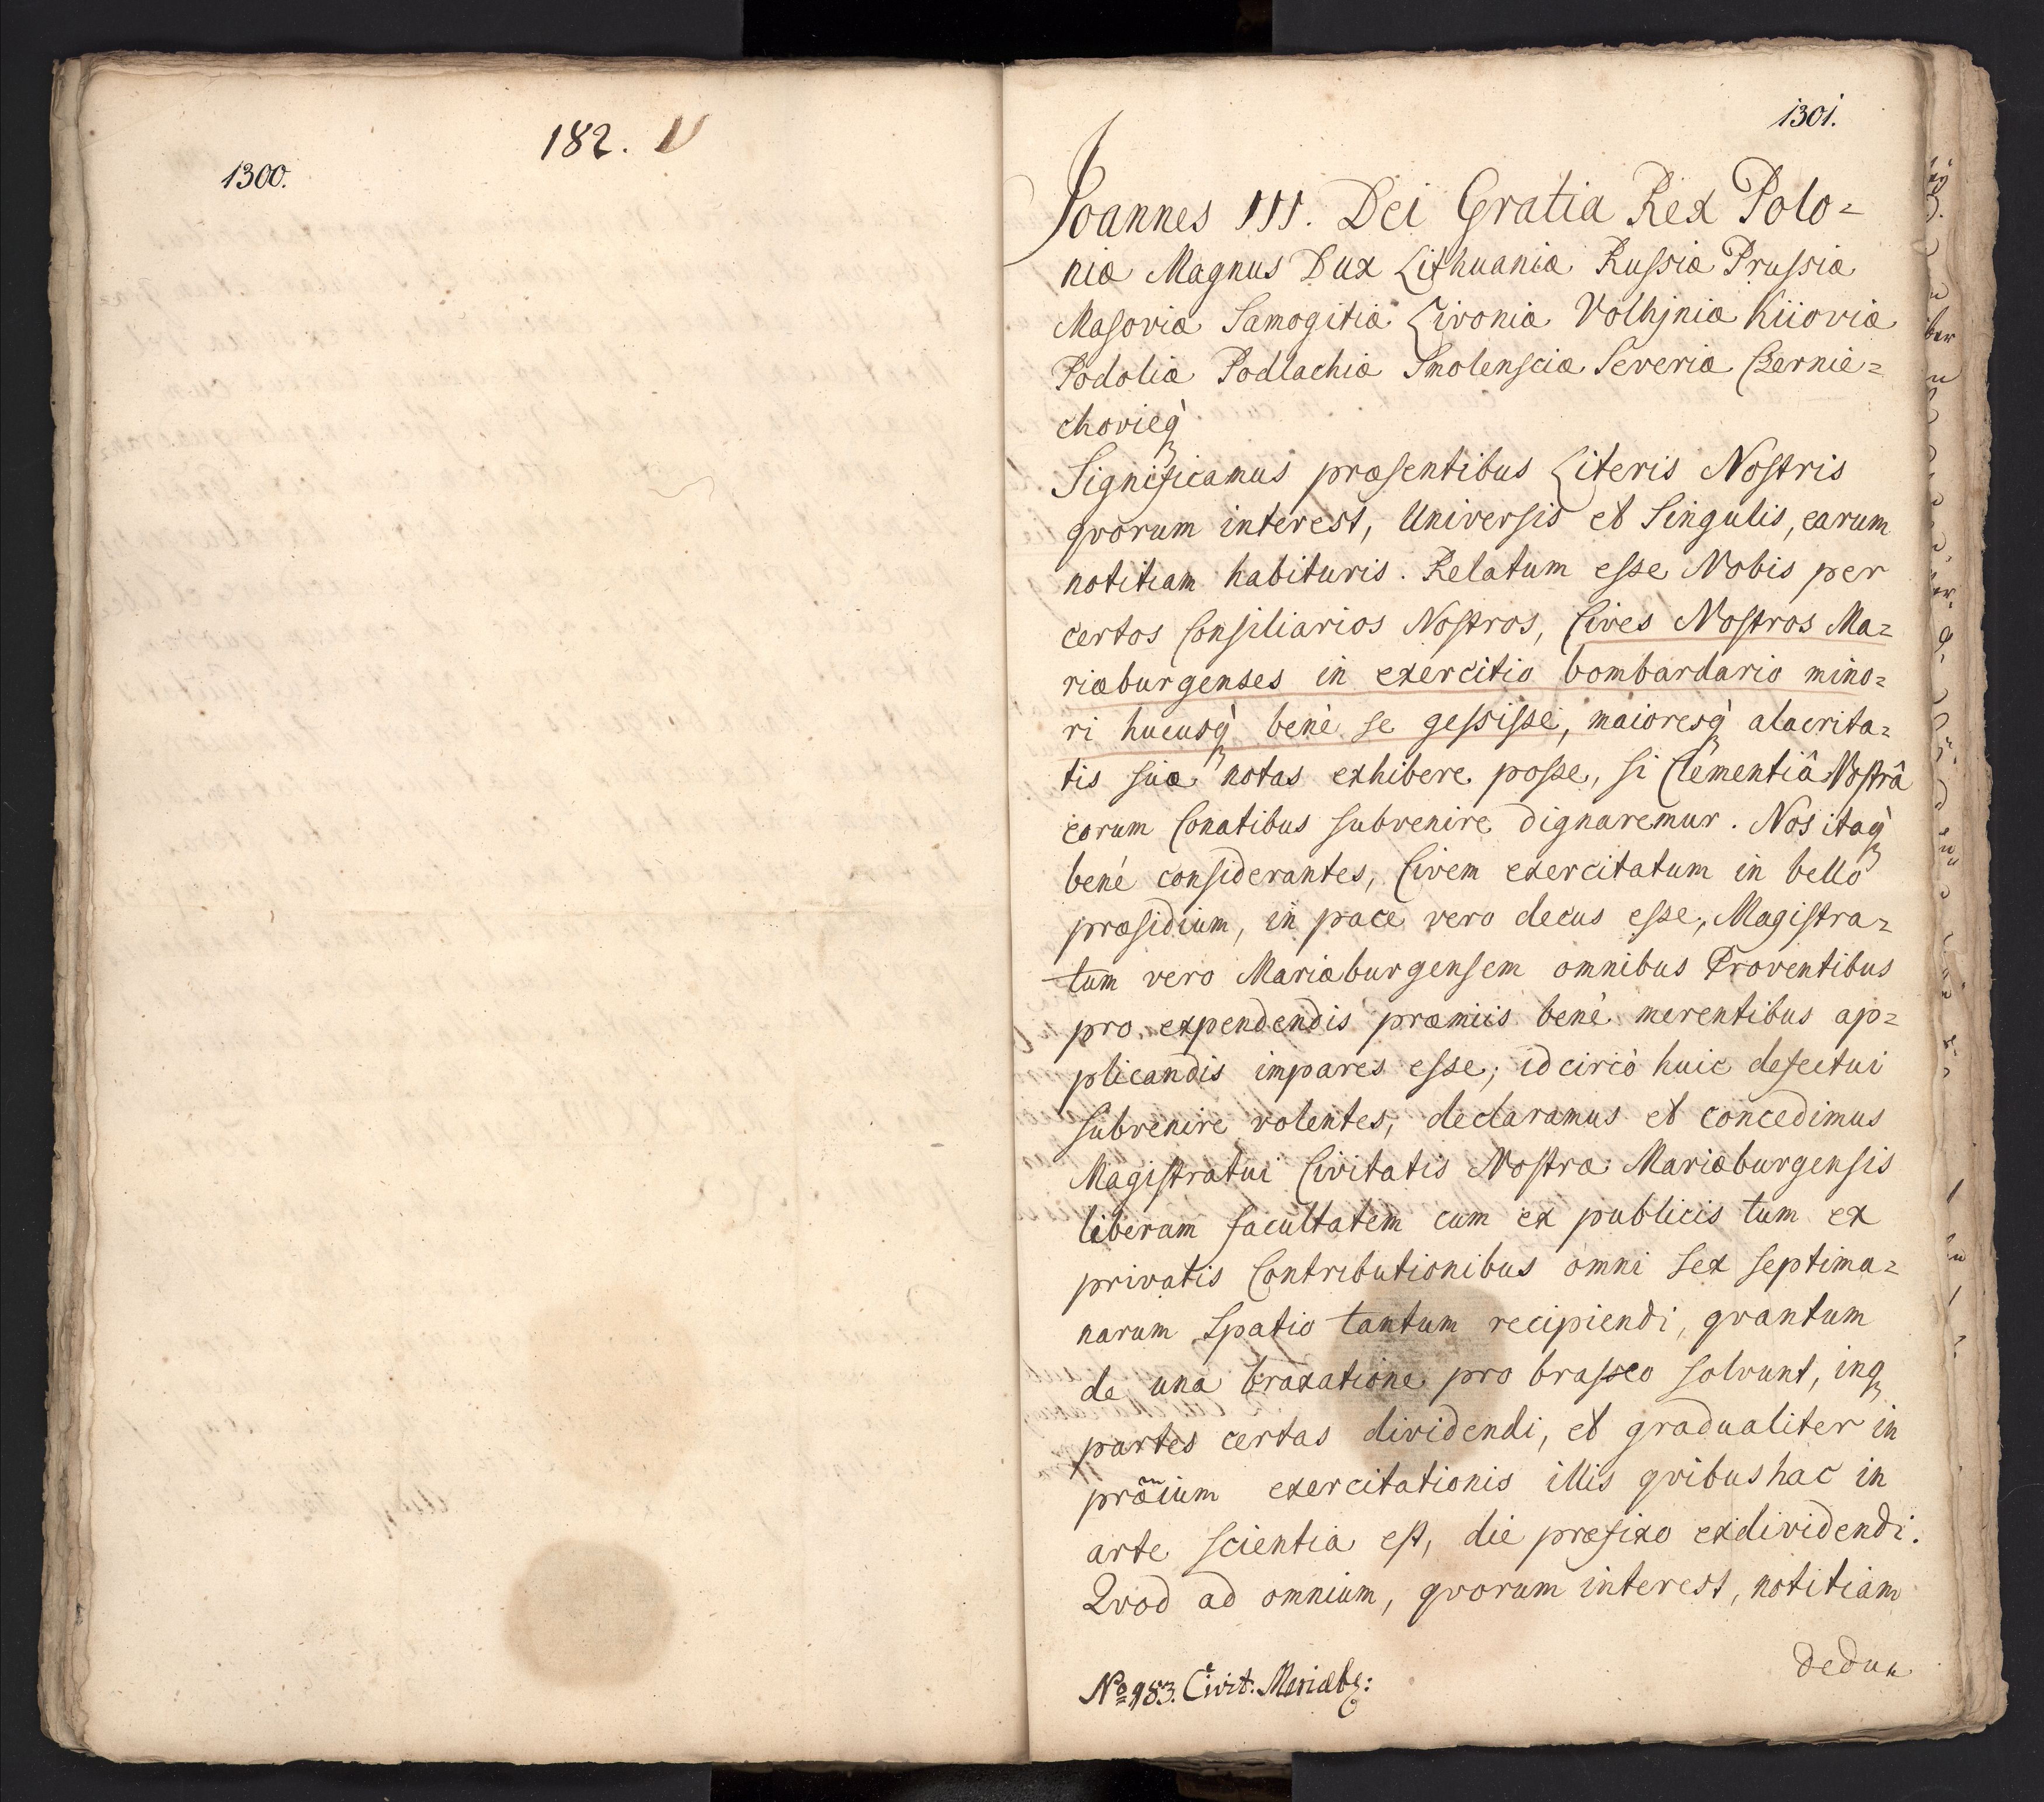 182. V
1300.
1301.
Joannes III. Dei Gratia Rex Polo=
niæ Magnus Dux Lithuaniæ Russiæ Prussiæ
Masoviæ Samogitiæ Livoniæ Volhjniæ Kiioviæ
Podoliæ Podlachiæ Smolensciæ Severiæ Czernie=
chovieq́
Significamus præsentibus Literis Nostris
qvorum interest, Universis et Singulis, earum
notitiam habituris. Relatum esse Nobis per
certos Consiliarios Nostros, Cives Nostros Ma=
riæburgenses in exercitio bombardario mino=
ri hucusq́ benè se gessisse, maioresq́ alacrita=
tis suæ notas exhibere posse, si Clementiâ Nostrâ
eorum Conatibus subvenire dignaremur. Nos itaq́
bené considerantes, Civem exercitatum in bello
præsidium, in pace vero decus esse, Magistra=
tum vero Mariæburgensem omnibus Proventibus
pro expendendis præmiis benè merentibus ap=
plicandis impares esse; idcircò huic defectui
subvenire volentes, declaramus et concedimus
Magistratui Civitatis Nostræ Mariæburgensis
liberam facultatem cum ex publicis tum ex
privatis Contributionibus omni sex septima=
narum spatio tantum recipiendi, qvantum
de una braxatione pro brasseo solvunt, inq
partes certas dividendi, et gradualiter in
præ͠ium exercitationis illis qvibus hac in
arte scientia est, die præfixo exdividendi.
Qvod ad omnium, qvorum interest, notitiam
dedu
No 983. Civit. Mariæbg: